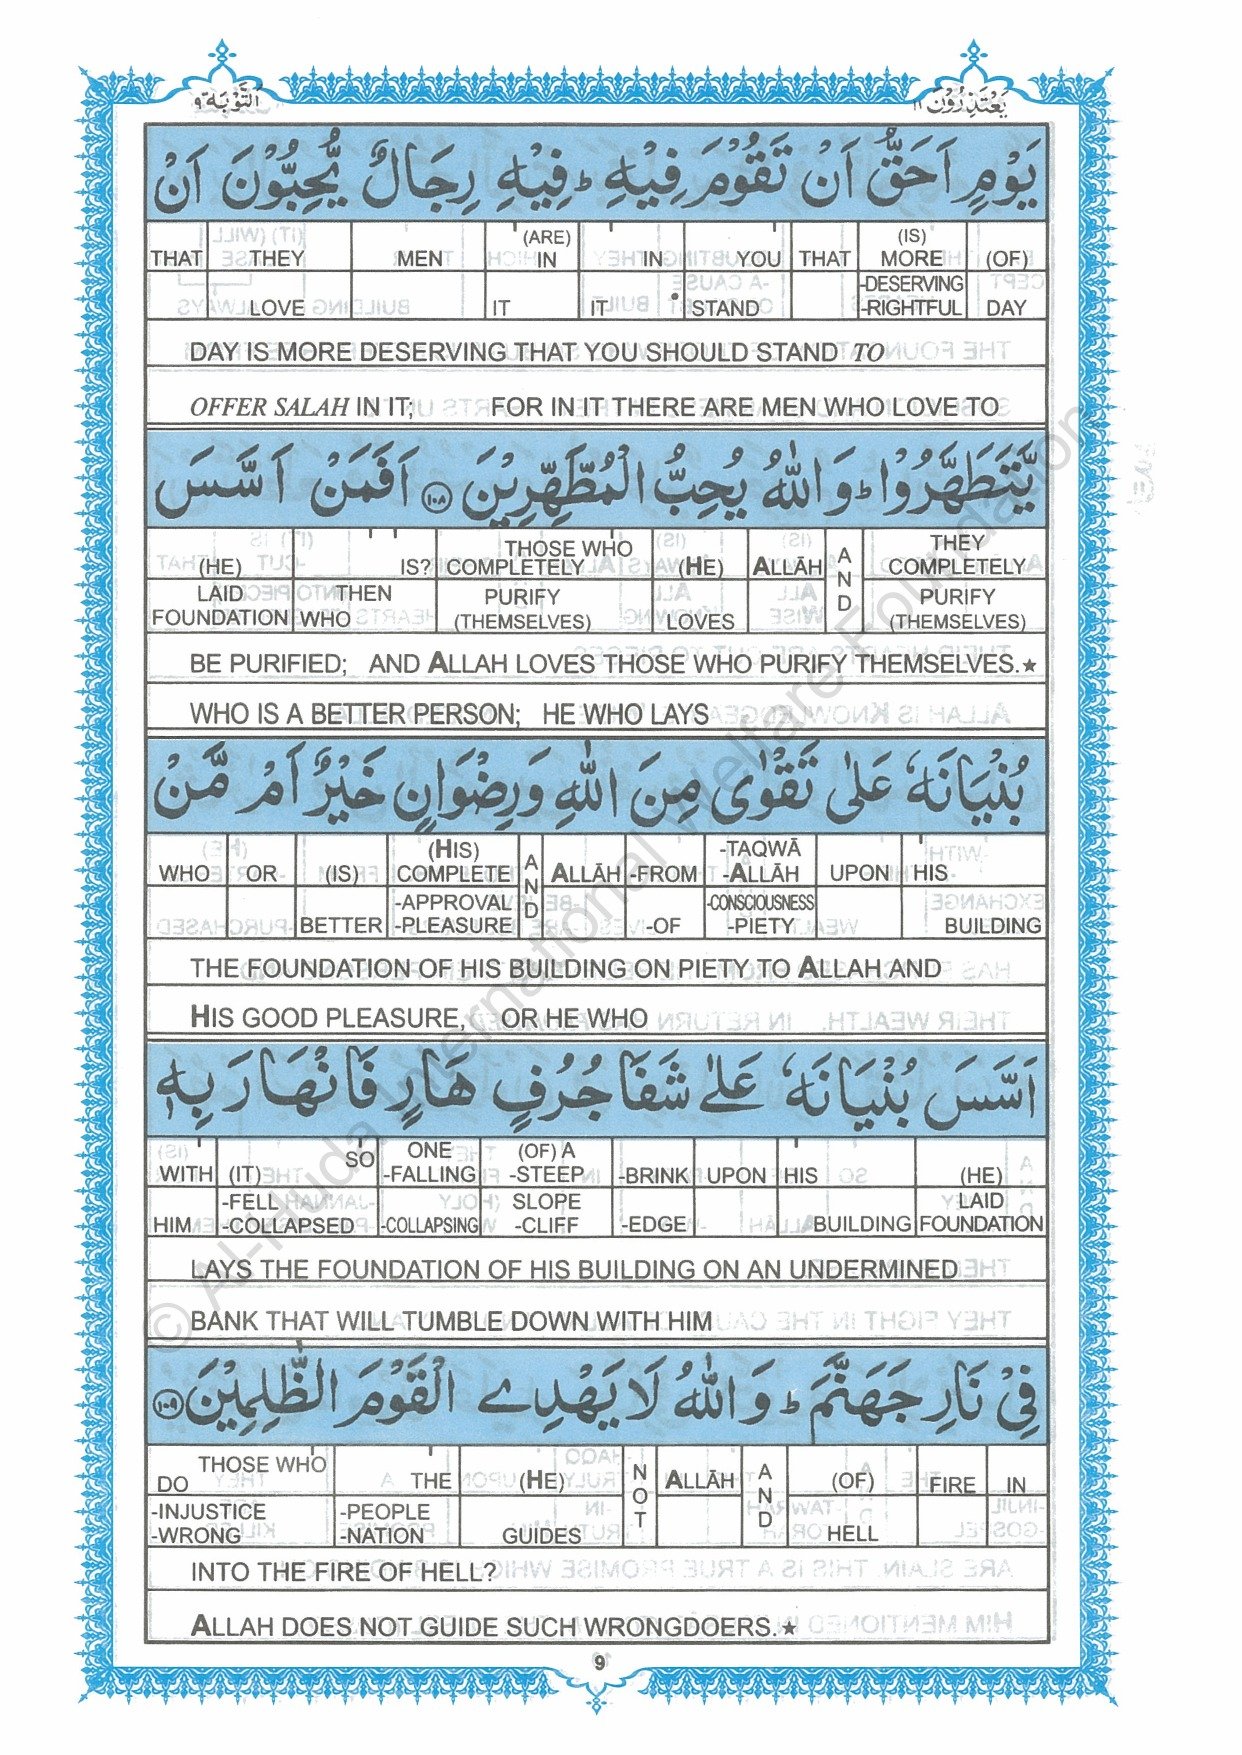 التَّوْبَة ٩
يَعْتَذِرُوْنَ ١١
يَوْمٍ اَحَقُّ اَنْ تَقُوْمَ فِيْهِ ؕ فِيْهِ رِجَالٌ يُّحِبُّوْنَ اَنْ
THAT THEY MEN (ARE) IN IN YOU THAT (IS) MORE (OF)
LOVE IT IT STAND -DESERVING -RIGHTFUL DAY
DAY IS MORE DESERVING THAT YOU SHOULD STAND TO
OFFER SALAH IN IT; FOR IN IT THERE ARE MEN WHO LOVE TO
يَّتَطَهَّرُوْا ؕ وَاللّٰهُ يُحِبُّ الْمُطَّهِّرِيْنَ ١٠٨ اَفَمَنْ اَسَّسَ
(HE) IS? THOSE WHO COMPLETELY (HE) ALLĀH AND THEY COMPLETELY
LAID FOUNDATION THEN WHO PURIFY (THEMSELVES) LOVES PURIFY (THEMSELVES)
BE PURIFIED; AND ALLAH LOVES THOSE WHO PURIFY THEMSELVES.★
WHO IS A BETTER PERSON; HE WHO LAYS
بُنْيَانَهٗ عَلٰى تَقْوٰى مِنَ اللّٰهِ وَرِضْوَانٍ خَيْرٌ اَمْ مَّنْ
WHO OR (IS) (HIS) COMPLETE AND ALLĀH -FROM -TAQWĀ -ALLĀH UPON HIS
BETTER -APPROVAL -PLEASURE -OF -CONSCIOUSNESS -PIETY BUILDING
THE FOUNDATION OF HIS BUILDING ON PIETY TO ALLAH AND
HIS GOOD PLEASURE, OR HE WHO
اَسَّسَ بُنْيَانَهٗ عَلٰى شَفَا جُرُفٍ هَارٍ فَانْهَارَ بِهٖ
WITH (IT) SO ONE -FALLING (OF) A -STEEP -BRINK UPON HIS (HE)
HIM -FELL -COLLAPSED -COLLAPSING SLOPE -CLIFF -EDGE BUILDING LAID FOUNDATION
LAYS THE FOUNDATION OF HIS BUILDING ON AN UNDERMINED
BANK THAT WILL TUMBLE DOWN WITH HIM
فِيْ نَارِ جَهَنَّمَ ؕ وَاللّٰهُ لَا يَهْدِے الْقَوْمَ الظّٰلِمِيْنَ ١٠٩
DO THOSE WHO THE (HE) NOT ALLĀH AND (OF) FIRE IN
-INJUSTICE -WRONG -PEOPLE -NATION GUIDES HELL
INTO THE FIRE OF HELL?
ALLAH DOES NOT GUIDE SUCH WRONGDOERS.★
9
© Al-Huda International Welfare Foundation